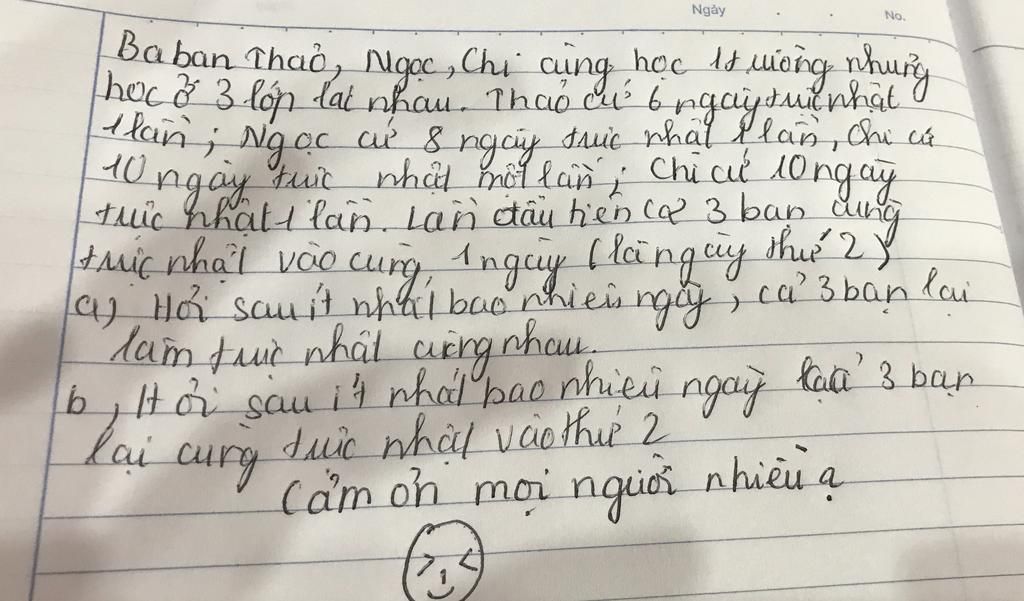 Ngày No.
Ba bạn Thảo, Ngọc, Chi cùng học 1 trường nhưng
học ở 3 lớp lat nhau. Thảo cứ 6 ngày trực nhật
1 lần; Ngọc cứ 8 ngày trực nhật 1 lần, Chi cứ
10 ngày trực nhật một lần; Chi cứ 10 ngày
trực nhật 1 lần. Lần đầu tiên cả 3 bạn cùng
trực nhật vào cùng 1 ngày (là ngày thứ 2)
a) Hỏi sau ít nhất bao nhiêu ngày, cả 3 bạn lại
làm trực nhật cùng nhau.
b, Hỏi sau ít nhất bao nhiêu ngày cả 3 bạn
lại cùng trực nhật vào thứ 2
Cảm ơn mọi người nhiều ạ